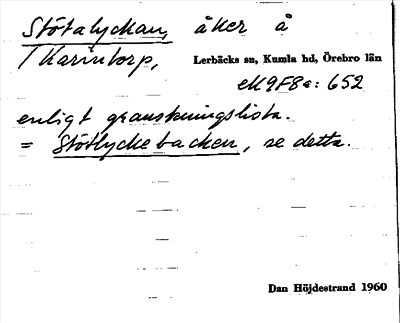 Stötalyckan, åker å
/Karintorp, Lerbäcks sn, Kumla hd, Örebro län
ek9F8a: 652
enligt granskningslista.
= Stötlyckebacken, se detta.
Dan Höjdestrand 1960